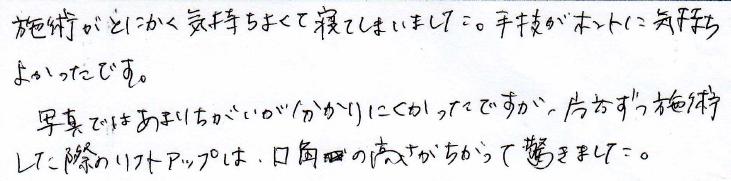 施術がとにかく気持ちよくて寝てしまいました。手技がホントに気持ち
よかったです。
写真ではあまりちがいが分かりにくかったですが、片方ずつ施術
した際のリフトアップは、口角の高さがちがって驚きました。